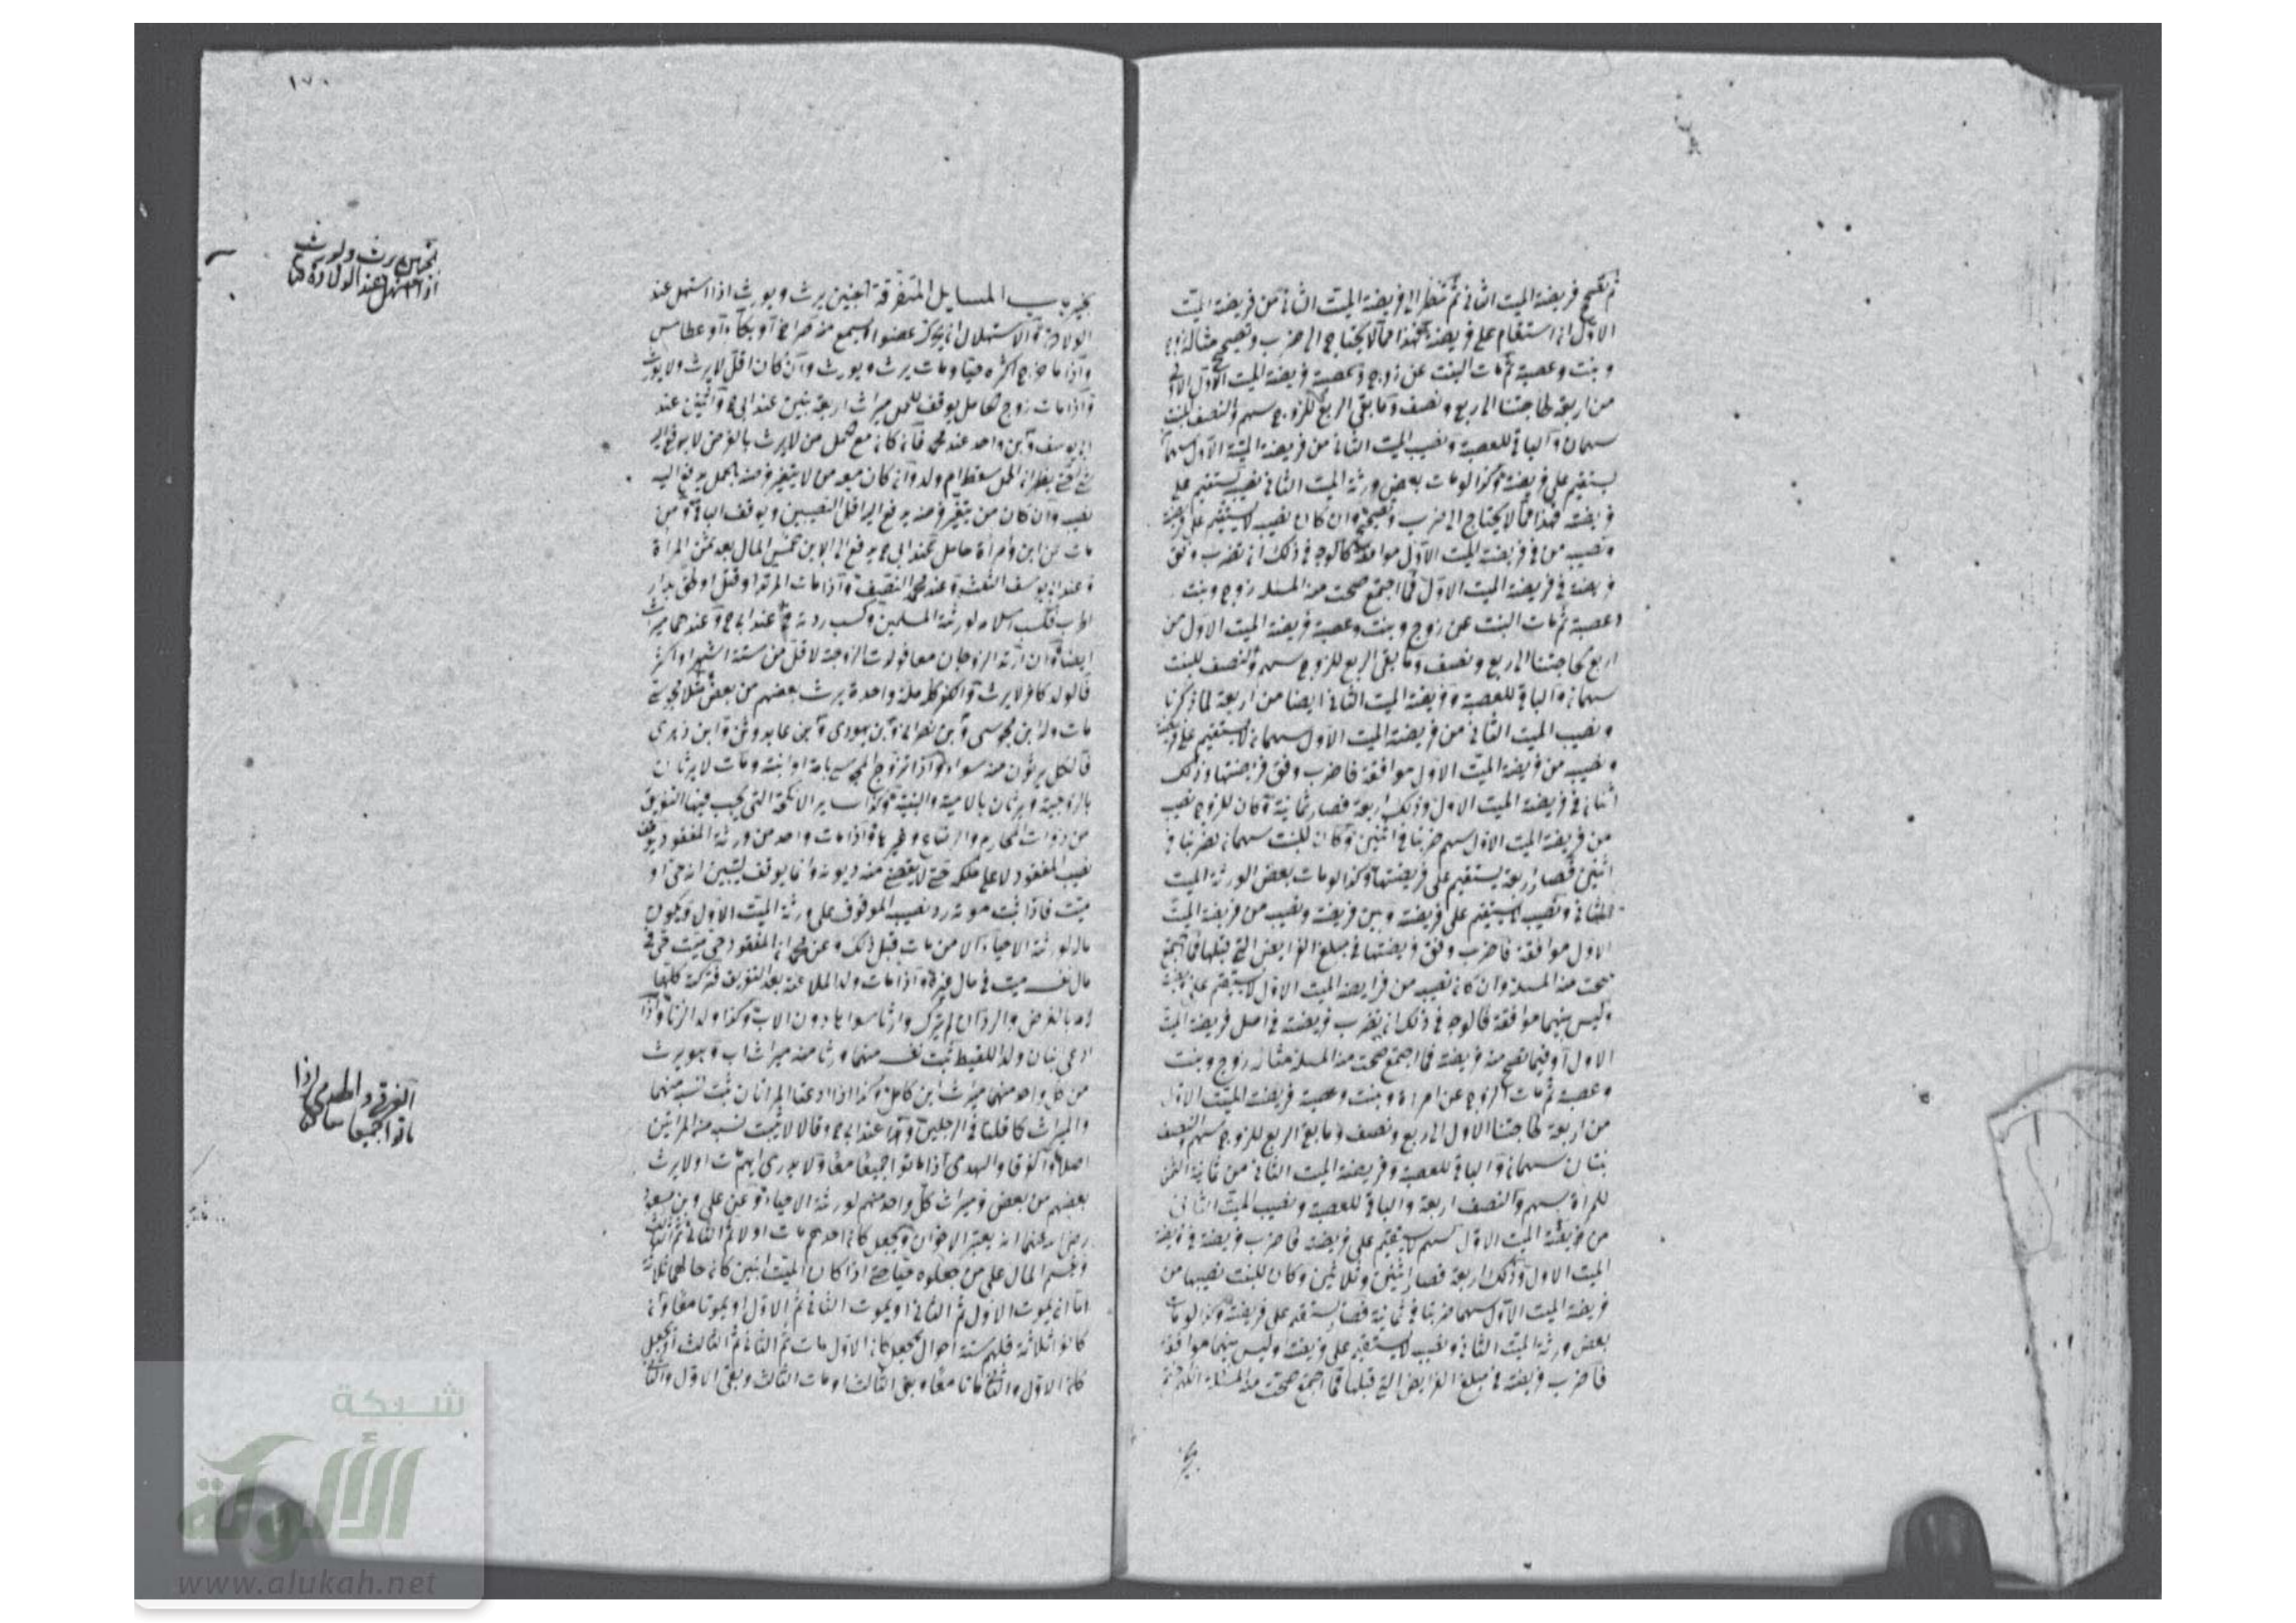 ثم تصحح فريضة الميت الثاني ثم تنظر الى فريضة الميت الثاني من فريضة الميت
الاول ان استقام على فريضة فهذا مما لا يحتاج الى ضرب وتصحيح مثاله زوج
وبنت وعصبة ثم مات البنت عن زوج وعصبة فريضة الميت الاول
من اربعة لحاجتنا الى ربع ونصف وما بقى الربع للزوج سهم والنصف للبنت
سهمان والباقي للعصبة ونصيب الميت الثاني من فريضة الميت الاول سهمان
يستقيم على فريضته وكذا لو مات بعض ورثة الميت الثاني نصيب يستقيم على
فريضته فهذا مما لا يحتاج الى ضرب وتصحيح وان كان نصيب لا يستقيم على فريضته
ونصيب من في فريضة الميت الاول موافقة فالوجه في ذلك ان تضرب وفق
فريضته في فريضة الميت الاول فما اجتمع صحت منه المسئلة زوج وبنت
وعصبة ثم مات البنت عن زوج وبنت وعصبة فريضة الميت الاول من
اربع لحاجتنا الى ربع ونصف وما بقى الربع للزوج سهم والنصف للبنت
سهمان والباقي للعصبة وفريضة الميت الثاني ايضا من اربعة لما ذكرنا
ونصيب الميت الثاني من فريضة الميت الاول سهمان لا يستقيم على فريضته
ونصيب من فريضة الميت الاول موافقة فاضرب وفق فريضتها وذلك
اثنان في فريضة الميت الاول وذلك اربعة فصار ثمانية وكان للزوج نصيب
من فريضة الميت الاول سهم ضربنا في اثنين وكان للبنت سهمان يضربنا في
اثنين فصار اربعة يستقيم على فريضتها وكذا لو مات بعض الورثة الميت
الثاني ونصيب لا يستقيم على فريضته وبين فريضته ونصيب من فريضة الميت
الاول موافقة فاضرب وفق فريضتها في مبلغ الفرايض التي قبلها فما اجتمع
صحت منه المسئلة وان كان نصيب من فرايضة الميت الاول لا يستقيم على فريضته
وليس بينهما موافقة فالوجه في ذلك ان يضرب فريضته في اصل فريضة الميت
الاول او فيما تصح منه فريضته فما اجتمع صحت منه المسئلة مثاله زوج وبنت
وعصبة ثم مات الزوج عن امراة وبنت وعصبة فريضة الميت الاول
من اربعة لحاجتنا الاول الى ربع ونصف وما بقى الربع للزوج سهم والنصف
سهمان والباقي للعصبة وفريضة الميت الثاني من ثمانية الثمن
للمراة سهم والنصف اربعة والباقي للعصبة ونصيب الميت الثاني
من فريضة الميت الاول سهم لا يستقيم على فريضته فاضرب فريضته في فريضة
الميت الاول وذلك اربعة فصار اثنين وثلاثين وكان للبنت نصيبها من
فريضة الميت الاول سهما ضربنا في ثمانية فصار يستقيم على فريضته وكذا لو مات
بعض ورثة الميت الثاني ونصيب لا يستقيم على فريضته وليس بينهما موافقة
فاضرب فريضته في مبلغ الفرايض التي قبلها فما اجتمع صحت منه المسئلة
١٧٠
باب المسايل المتفرقة الجنين يرث ويورث اذا استهل عند
الولادة والاستهلال ان يحرك عضوا او يسمع منه صراخ او بكاء او عطاس
واذا ما خرج اكثره حيا ومات يرث ويورث وان كان اقل لا يرث ولا يورث
واذا مات زوج الحامل يوقف للحمل ميراث اربعة بنين عند ابي ح واثنين عند
ابي يوسف وابن واحد عند محمد فان كان مع الحمل من لا يرث بالفرض لا يدفع اليه
شئ حتى يظهر ان الحمل سقط ام ولد وان كان معه من لا يتغير فرضه بالحمل يدفع اليه
نصيبه وان كان من يتغير فرضه يدفع اليه اقل النصيبين ويوقف الباقي ومن
مات عن ابن وامراة حامل فعند ابي ح يدفع الى الابن خمس المال بعد ثمن المراة
وعند ابي يوسف الثلث وعند محمد النصف واذا مات المرتد او قتل او لحق بدار
الحرب فكسب اسلامه لورثة المسلمين وكسب ردته عند ابي ح وعندهما ميراث
ايضا وان ارتد الزوجان معا فولدت الزوجة لاقل من ستة اشهر او اكثر
فالولد كافر لا يرث والكفر كله ملة واحدة يرث بعضهم من بعض مثلا مجوسي
مات وله ابن مجوسى وابن نصراني وابن يهودى وابن عابد وثن وابن
فالكل يرثون منه سواء واذا تزوج المجوسي بامه او ابنته ومات لا يرثان
بالزوجية ويرثان بالامية والبنتية وكذا ساير الانكحة التي يجب فيها التفريق
من ذوات المحارم والرضاع وغيرها واذا مات واحد من ورثة المفقود يوقف
نصيب المفقود لا على ملكه حتى لا يقضى منه ديونه وانما يوقف ليتبين انه حى او
ميت فاذا ثبت موته رد نصيب الموقوف على ورثة الميت الاول ويكون
ماله لورثة الاحياء الا من مات قبل ذلك وعن محمد ان المفقود حي ميت حي في
مال نفسه ميت في مال غيره واذا مات ولد الملاعنة بعد التفريق فتركته كلها
لامه بالفرض والرد ان لم يترك وارثا سواها دون الاب وكذا ولد الزنا واذا
ادعى اثنان ولد اللقيط ثبت نسبه منهما ورثا منه ميراث اب وهو يرث
من كل واحد منهما ميراث ابن كامل وكذا اذا ادعتا المراتان ثبت نسبه منهما
والميراث كما قلنا في الرجلين وهذا عند ابي ح وقالا لا يثبت نسبه من المراتين
اصلا والغرقا والهدمى اذا ماتوا جميعا معا ولا يدرى ايهم مات اولا لا يرث
بعضهم من بعض وميراث كل واحد منهم لورثة الاحياء وعن على وابن مسعود
رضى الله عنهما انه يعتبر الاحوال ويجعل كان احدهم مات اولا ثم الثاني ثم الثالث
ويقسم المال على من جعلوه حيا حتى اذا كان الميت اثنين كان حالهما ثلاثة
اما ان يموت الاول ثم الثاني او يموت الثاني ثم الاول او يموتا معا وان
كانوا ثلاثة فلهم ستة احوال يجعل كان الاول مات ثم الثاني ثم الثالث او يجعل
كان الاول والثاني ماتا معا وبقى الثالث او مات الثالث وبقى الاول والثاني
الجنين يرث ويورث
اذا استهل عند الولادة
الغرقى والهدمى اذا
ماتوا جميعا معا
شبكة
الألوكة
www.alukah.net